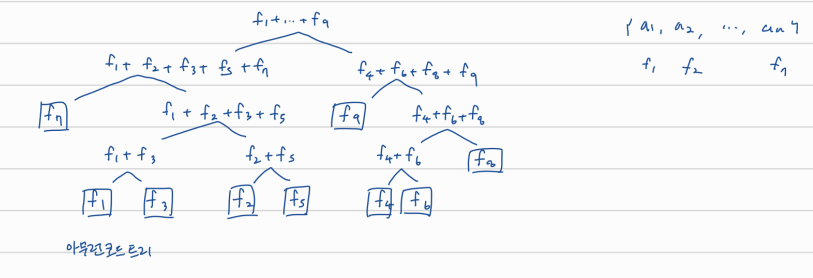 f₁+…+f₉
{a₁, a₂, …, aₙ}
f₁+ f₂+f₃+ f₅ +f₇
f₄+f₆+f₈+ f₉
f₁ f₂ f₇
f₇
f₁ + f₂ +f₃ +f₅
f₉
f₄+f₆+f₈
f₁+ f₃
f₂+f₅
f₄+f₆
f₈
f₁
f₃
f₂
f₅
f₄
f₆
아무런코드트리